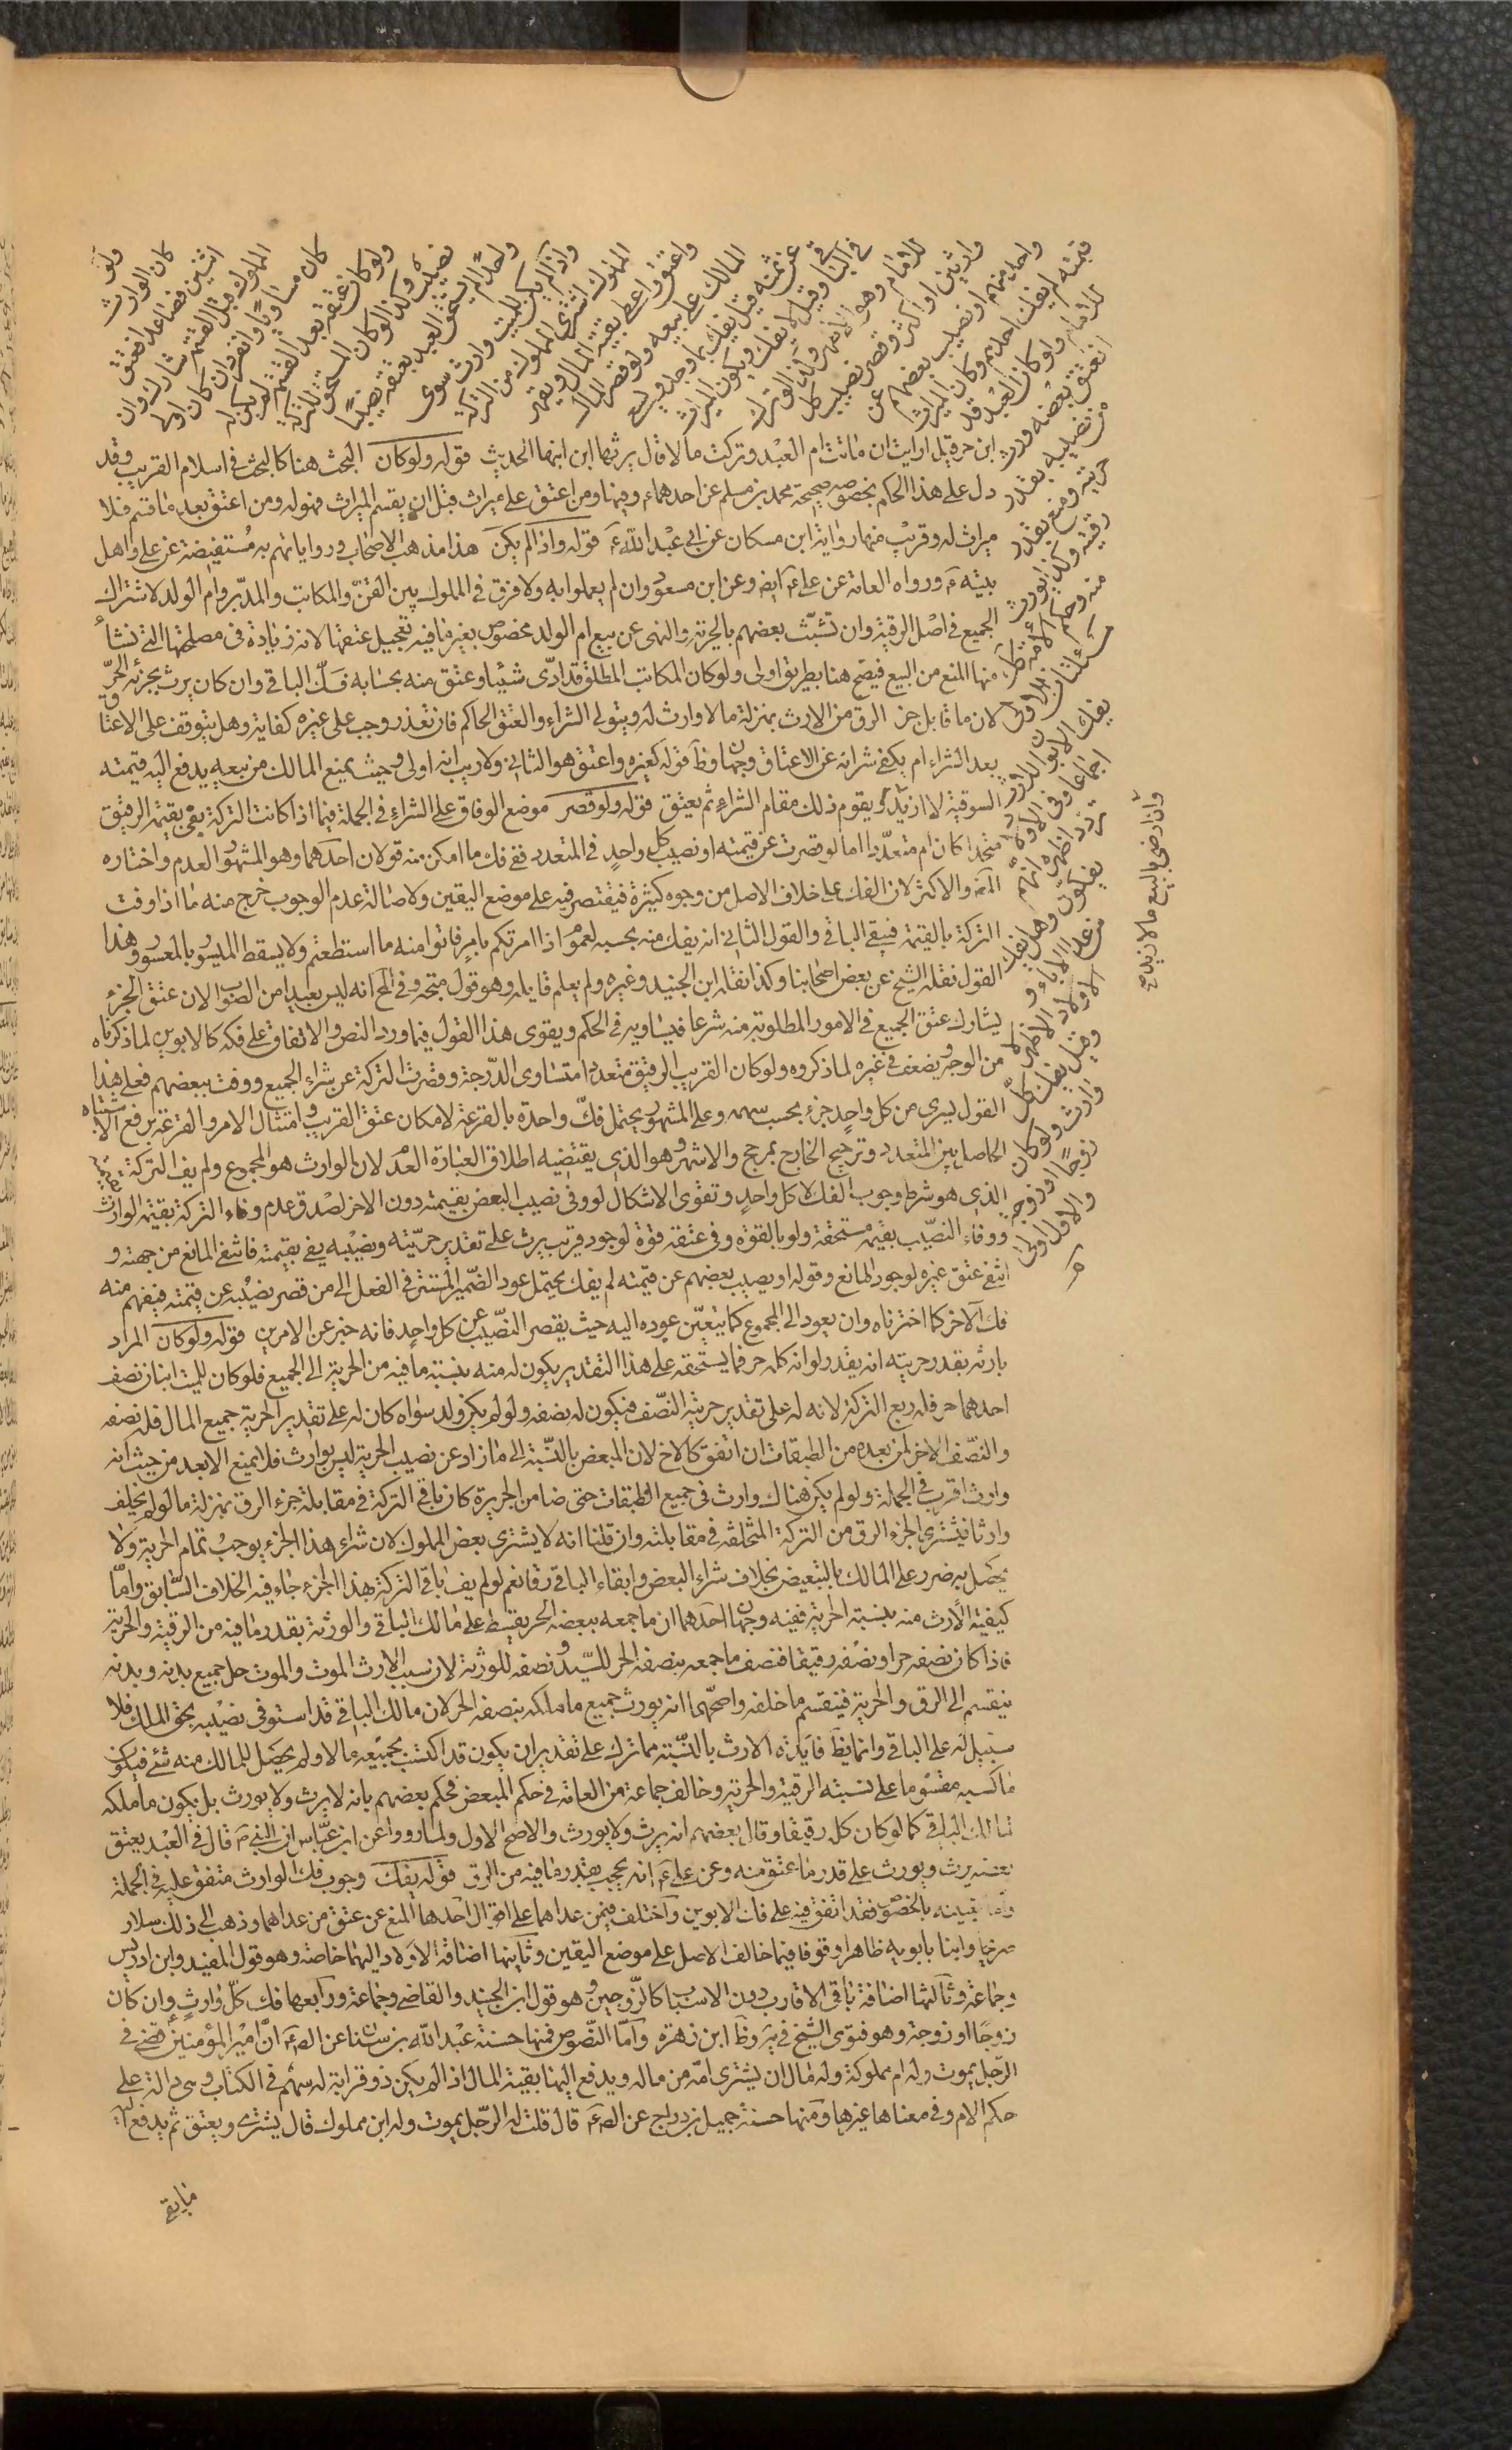 ولو
كان الوارث
اثنين فصاعدا فعتق
المملوك قبل القسمة شارك ان
كان مساويا وانفرد ان كان اولى
ولو كان عتقه بعد القسمة لم يكن له
نصيب وكذا لو كان المستحق للتركة
واحدا لم يستحق العبد بعتقه نصيبا
واذا لم يكن للميت وارث سوى
المملوك اشترى المملوك من التركة
واعتق واعطى بقية المال ويقهر
المالك على بيعه ولو قصر المال
عن ثمنه قيل يفك بما وجد ويسعى
في الباقي وقيل لا يفك ويكون الميراث
للامام وهو الاظهر وكذا لو ترك
وارثين او اكثر وقصر نصيب كل
واحد منهم او نصيب بعضهم عن
قيمته لم يفك احدهم وكان الميراث
للامام ولو كان العبد قد
انعتق بعضه ورث
من نصيبه بقدر
حريته ومنع بقدر
رقيته وكذا يورث
منه وحكم الامة كذلك
يفك الابوان للارث
اجماعا وفي الاولاد
تردد اظهره انهم
يفكون وهل يفك
من عدا الاباء و
الاولاد الاظهر لا
وقيل يفك كل
وارث ولو كان
زوجا او زوجة
والاول اولى
وان رضي بالبيع مالا يزيد
ابن حر قيل ارايت ان ماتت ام العبد وتركت مالا قال يرثها ابن ابنها الحديث قوله ولو كان البحث هنا كالبحث في اسلام القريب وقد
دل على هذا الحكم بخصوصه صحيحة محمد بن مسلم عن احدهما ع وفيها ومن اعتق على ميراث قبل ان يقسم الميراث فهو له ومن اعتق بعد ما قسم فلا
ميراث له وقريب منها رواية ابن مسكان عن ابي عبد الله ع قوله واذا لم يكن هذا مذهب الاصحاب ورواياتهم به مستفيضة عن علي واهل
بيته ع ورواه العامة عن علي ع ايض وعن ابن مسعود وان لم يعملوا به ولا فرق في المملوك بين القن والمكاتب والمدبر وام الولد لاشتراك
الجميع في اصل الرقية وان تشبث بعضهم بالحرية والنهي عن بيع ام الولد مخصوص بغير ما فيه تعجيل عتقها لانه زيادة في مصلحتها التي نشأ
منها المنع من البيع فيصح هنا بطريق اولى ولو كان المكاتب المطلق قد ادى شيئا وعتق منه بحسابه فك الباقي وان كان يرث بجزئه الحر
لان ما قابل جزء الرق من الارث بمنزلة ما لا وارث له ويتولى الشراء والعتق الحاكم فان تعذر وجب على غيره كفاية وهل يتوقف على الاعتاق
بعد الشراء ام يكفي شراؤه عن الاعتاق وجهان وظ قوله كغيره واعتق هو الثاني ولا ريب انه اولى وحيث يمنع المالك من بيعه يدفع اليه قيمته
السوقية لا ازيد ويقوم ذلك مقام الشراء ثم يعتق قوله ولو قصر موضع الوفاق على الشراء في الجملة فيما اذا كانت التركة تفي بقيمة الرقيق
متحدا كان ام متعددا اما لو قصرت عن قيمته او نصيب كل واحد في المتعدد ففي فك ما امكن منه قولان احدهما وهو المشهور العدم واختاره
المص والاكثر لان الفك على خلاف الاصل من وجوه كثيرة فيقتصر فيه على موضع اليقين ولاصالة عدم الوجوب خرج منه ما اذا وفت
التركة بالقيمة فيبقى الباقي والقول الثاني انه يفك منه بحسبه لعموم اذا امرتكم بامر فاتوا منه ما استطعتم ولا يسقط الميسور بالمعسور وهذا
القول نقله الشيخ عن بعض اصحابنا وكذا نقله ابن الجنيد وغيره ولم يعلم قايله وهو قول متجه وفي المخ انه ليس بعيدا من الصواب لان عتق الجزء
يشارك عتق الجميع في الامور المطلوبة منه شرعا فيساويه في الحكم ويقوى هذا القول فيما ورد النص والاتفاق على فكه كالابوين لما ذكرناه
من الوجوه ويضعف في غيره لما ذكروه ولو كان القريب الرقيق متعددا متساوي الدرجة وقصرت التركة عن شراء الجميع ووفت ببعضهم فعلى هذا
القول يسرى من كل واحد جزء بحسب سهمه وعلى المشهور يحتمل فك واحدة بالقرعة لامكان عتق القريب وامتثال الامر والقرعة ترفع الاشتباه
الحاصل بين المتعدد وترجيح الخارج بمرجح والاشهر وهو الذي يقتضيه اطلاق العبارة العدم لان الوارث هو المجموع ولم يف التركة
الذي هو شرط وجوب الفك لا كل واحد وتقوى الاشكال لو وفى نصيب البعض بقيمته دون الاخر لصدق عدم وفاء التركة بقيمة الوارث
ووفاء النصيب بقيمة مستحقه ولو بالقوة وفي عتقه قوة لوجود قريب يرث على تقدير حريته ونصيبه يفي بقيمته فانتفى المانع من جهته و
انتفى عتق غيره لوجود المانع وقوله او نصيب بعضهم عن قيمته لم يفك يحتمل عود الضمير المستتر في الفعل الى من قصر نصيبه عن قيمته فيفهم منه
فك الاخر كما اخترناه وان يعود الى المجموع كما يتعين عوده اليه حيث يقصر النصيب عن كل واحد فانه خبر عن الامرين قوله ولو كان المراد
بارثه بقدر حريته انه يقدر لو انه كله حر فما يستحقه على هذا التقدير يكون له منه بنسبة ما فيه من الحرية الى الجميع فلو كان للميت ابنان نصف
احدهما حر فله ربع التركة لانه له على تقدير حريته النصف فيكون له نصفه ولو لم يكن ولد سواه كان له على تقدير الحرية جميع المال فله نصفه
والنصف الاخر لمن بعده من الطبقات ان اتفق كالاخ لان المبعض بالنسبة الى ما زاد عن نصيب الحرية ليس بوارث فلا يمنع الابعد من حيث انه
وارث اقرب في الجملة ولو لم يكن هناك وارث في جميع الطبقات حتى ضامن الجريرة كان باقي التركة في مقابلة جزء الرق بمنزلة ما لو لم يخلف
وارثا فيشترى الجزء الرق من التركة المتخلفة في مقابلته وان قلنا انه لا يشترى بعض المملوك لان شراء هذا الجزء يوجب تمام الحرية ولا
يحصل به ضرر على المالك بالتبعيض بخلاف شراء البعض وابقاء الباقي رقا نعم لو لم يف باقي التركة بهذا الجزء جاء فيه الخلاف السابق واما
كيفية الارث منه بنسبة الحرية ففيه وجهان احدهما ان ما جمعه ببعضه الحر يقسط على مالك الباقي والورثة بقدر ما فيه من الرقية والحرية
فاذا كان نصفه حرا ونصفه رقيقا فنصف ما جمعه بنصفه الحر للسيد ونصفه للورثة لان سبب الارث الموت والموت حل جميع بدنه وبدنه
ينقسم الى الرق والحرية فينقسم ما خلفه واصحهما انه يورث جميع ما ملكه بنصفه الحر لان مالك الباقي قد استوفى نصيبه بحق الملك فلا
سبيل له على الباقي وانما يظ فايدة الارث بالنسبة مما ترك على تقدير ان يكون قد اكتسب بجميعه مالا ولم يحصل للمالك منه شئ فيكون
ما كسبه مقسوما على نسبة الرقية والحرية وخالف جماعة من العامة في حكم المبعض فحكم بعضهم بانه لا يرث ولا يورث بل يكون ما ملكه
لمالك الباقي كما لو كان كله رقيقا وقال بعضهم انه يرث ولا يورث والاصح الاول ولما رووا عن ابن عباس ان النبي ص قال في العبد يعتق
بعضه يرث ويورث على قدر ما عتق منه وعن علي ع انه يحجب بقدر ما فيه من الرق قوله يفك وجوب فك الوارث متفق عليه في الجملة
واما تعيينه بالخصوص فقد اتفق فيه على فك الابوين واختلف فيمن عداهما على اقوال احدها المنع عن عتق من عداهما وذهب الى ذلك سلار
صريحا وابنا بابويه ظاهرا وقوفا فيما خالف الاصل على موضع اليقين وثانيها اضافة الاولاد اليهما خاصة وهو قول المفيد وابن ادريس
وجماعة وثالثها اضافة باقي الاقارب دون الاسباب كالزوجين وهو قول ابن الجنيد والقاضي وجماعة ورابعها فك كل وارث وان كان
زوجا او زوجة وهو فتوى الشيخ في ية وظ ابن زهرة واما النصوص فمنها حسنة عبد الله بن سنان عن الص ع ان امير المؤمنين قضى في
الرجل يموت وله ام مملوكة وله مال ان يشترى امه من ماله ويدفع اليها بقية المال اذا لم يكن ذو قرابة له سهم في الكتاب وهي دالة على
حكم الام وفي معناها غيرها ومنها حسنة جميل بن دراج عن الص ع قال قلت له الرجل يموت وله ابن مملوك قال يشترى ويعتق ثم يدفع اليه
ما بقى